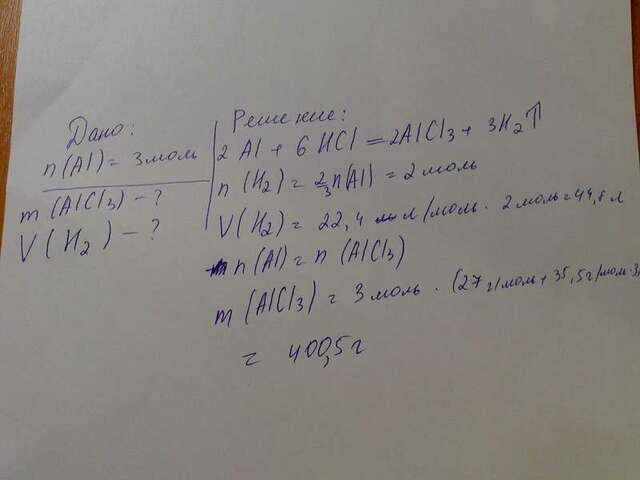 Дано:
n(Al) = 3моль
m(AlCl3) - ?
V(H2) - ?
Решение:
2 Al + 6 HCl = 2AlCl3 + 3H2↑
n(H2) = 2/3 n(Al) = 2 моль
V(H2) = 22,4 л/моль · 2 моль = 44,8 л
n(Al) = n(AlCl3)
m(AlCl3) = 3 моль · (27 г/моль + 35,5 г/моль · 3
= 400,5г